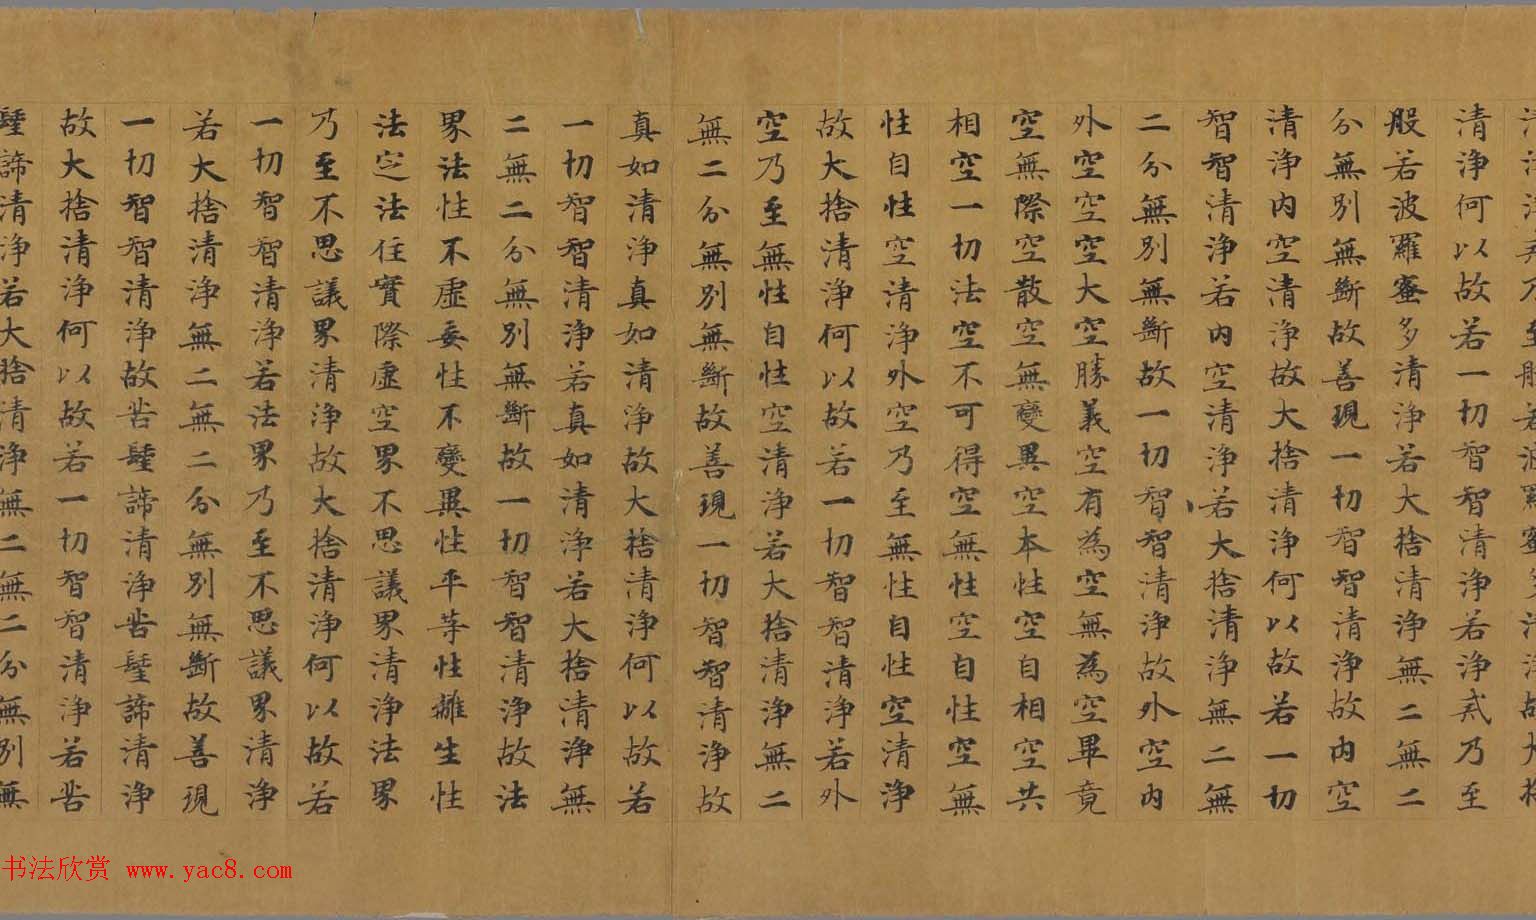 清淨淨戒乃至般若波羅蜜多清淨故大捨
清淨何以故若一切智智清淨若淨戒乃至
般若波羅蜜多清淨若大捨清淨無二無二
分無別無斷故善現一切智智清淨故內空
清淨內空清淨故大捨清淨何以故若一切
智智清淨若內空清淨若大捨清淨無二無
二分無別無斷故一切智智清淨故外空內
外空空空大空勝義空有為空無為空畢竟
空無際空散空無變異空本性空自相空共
相空一切法空不可得空無性空自性空無
性自性空清淨外空乃至無性自性空清淨
故大捨清淨何以故若一切智智清淨若外
空乃至無性自性空清淨若大捨清淨無二
無二分無別無斷故善現一切智智清淨故
真如清淨真如清淨故大捨清淨何以故若
一切智智清淨若真如清淨若大捨清淨無
二無二分無別無斷故一切智智清淨故法
界法性不虛妄性不變異性平等性離生性
法定法住實際虛空界不思議界清淨法界
乃至不思議界清淨故大捨清淨何以故若
一切智智清淨若法界乃至不思議界清淨
若大捨清淨無二無二分無別無斷故善現
一切智智清淨故苦聖諦清淨苦聖諦清淨
故大捨清淨何以故若一切智智清淨若苦
聖諦清淨若大捨清淨無二無二分無別無
书法欣赏 www.yac8.com